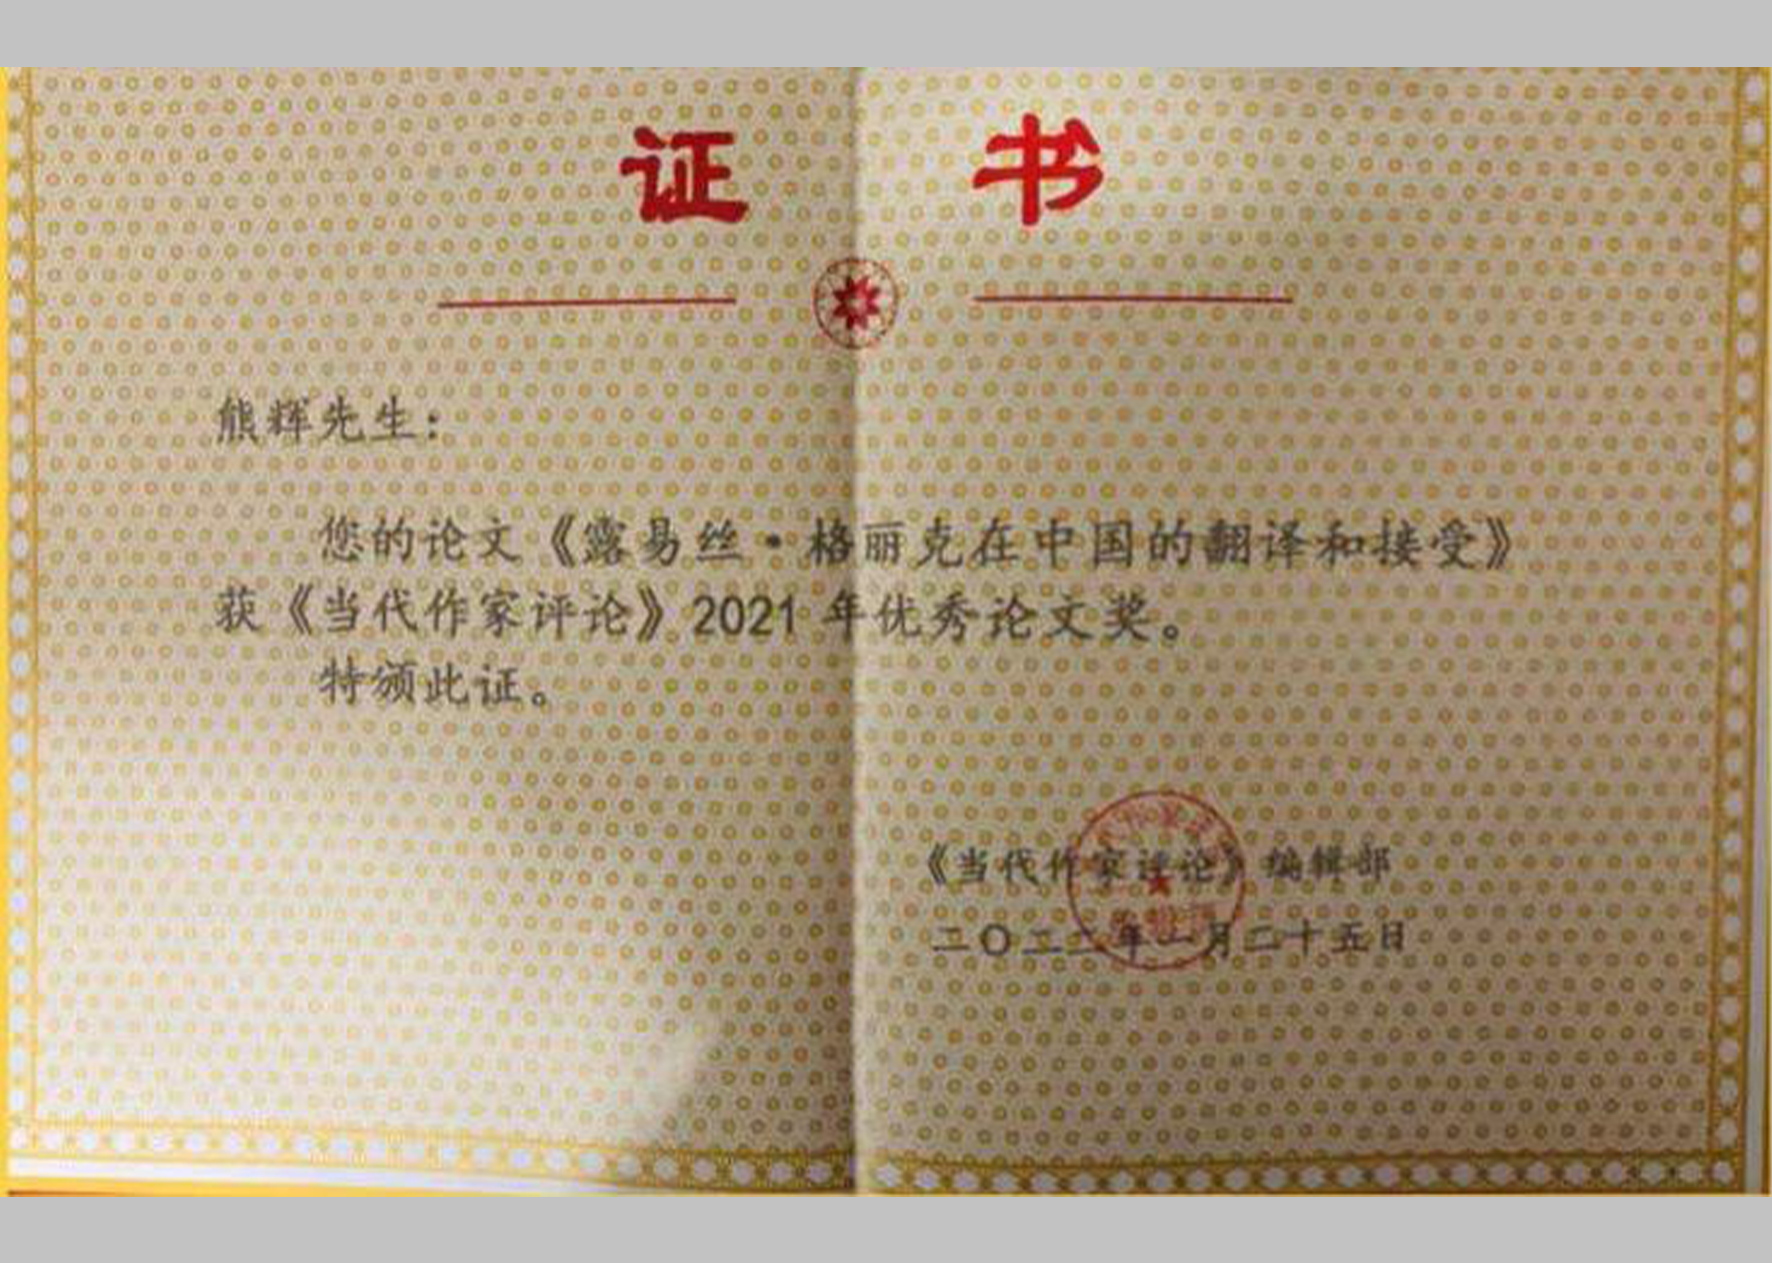 证 书
熊辉先生：
您的论文《露易丝·格丽克在中国的翻译和接受》
获《当代作家评论》2021 年优秀论文奖。
特颁此证。
《当代作家评论》编辑部
二〇二二年一月二十五日